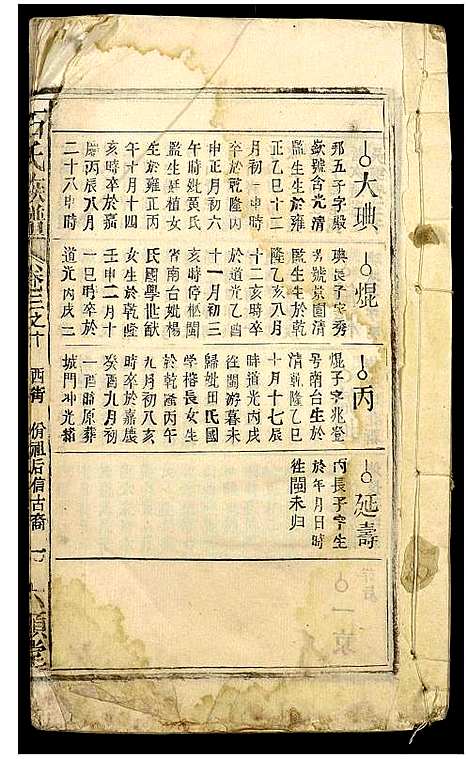 大琠
邦五子字殿
歆號含光清
監生生於雍
正乙巳十二
月初一申時
卒於乾隆丙
申正月初六
午時妣黃氏
監生延植女
生於雍正丙
午十月十四
亥時卒於嘉
慶丙辰八月
二十八申時
焜
琠長子字秀
號景園清
監生生於乾
隆乙亥八月
十二亥時卒
於道光乙酉
十一月初三
亥時停柩閩
省南台妣楊
氏國學世猷
女生於乾隆
壬申二月十
一巳時卒於
道光丙戌二
丙
焜子字兆登
號南台生於
清乾隆乙巳
十月十七辰
時道光丙戌
往閩游暮未
歸妣田氏國
學榕長女生
於乾隆丙午
九月初八亥
時卒於嘉慶
癸酉九月初
一酉時原葬
城門冲光裕
延壽
丙長子字生
於年月日時
徃閩未归
石氏族譜
卷三之十
西街
份祖后信古裔
六順堂